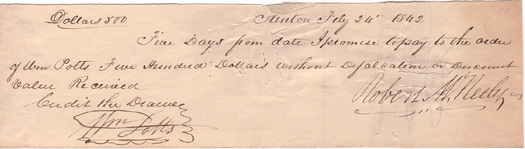 Dollars 500 Stenton Feby 24th 1842
Five Days from date I promise to pay to the order
of Wm Potts Five Hundred Dollars without Defalcation or Discount
Value Received
Credit the Drawer Robert
Wm Potts